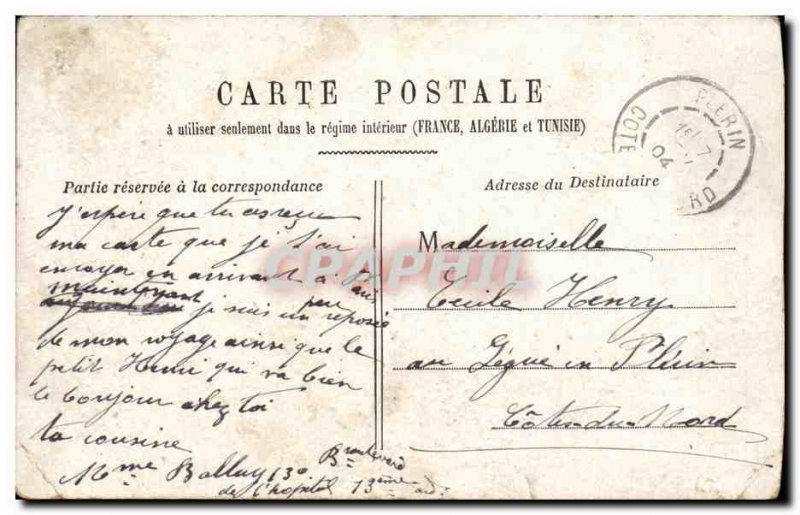 CARTE POSTALE
à utiliser seulement dans le régime intérieur (FRANCE, ALGÉRIE et TUNISIE)
PLÉRIN
1e 7
04
COTE
RD
Partie réservée à la correspondance
j'espère que tu as reçue
ma carte que je t'ai
envoyer en arrivant à Paris
maintenant je suis un peu reposée
de mon voyage ainsi que le
petit Henri qui va bien
le bonjour chez toi
ta cousine
Mme Balluy 130 Boulevard
de l'hopital 13eme ard:
Adresse du Destinataire
Mademoiselle
Cécile Henry
au Légué en Plérin
Côtes-du-Nord
CPAPHIL